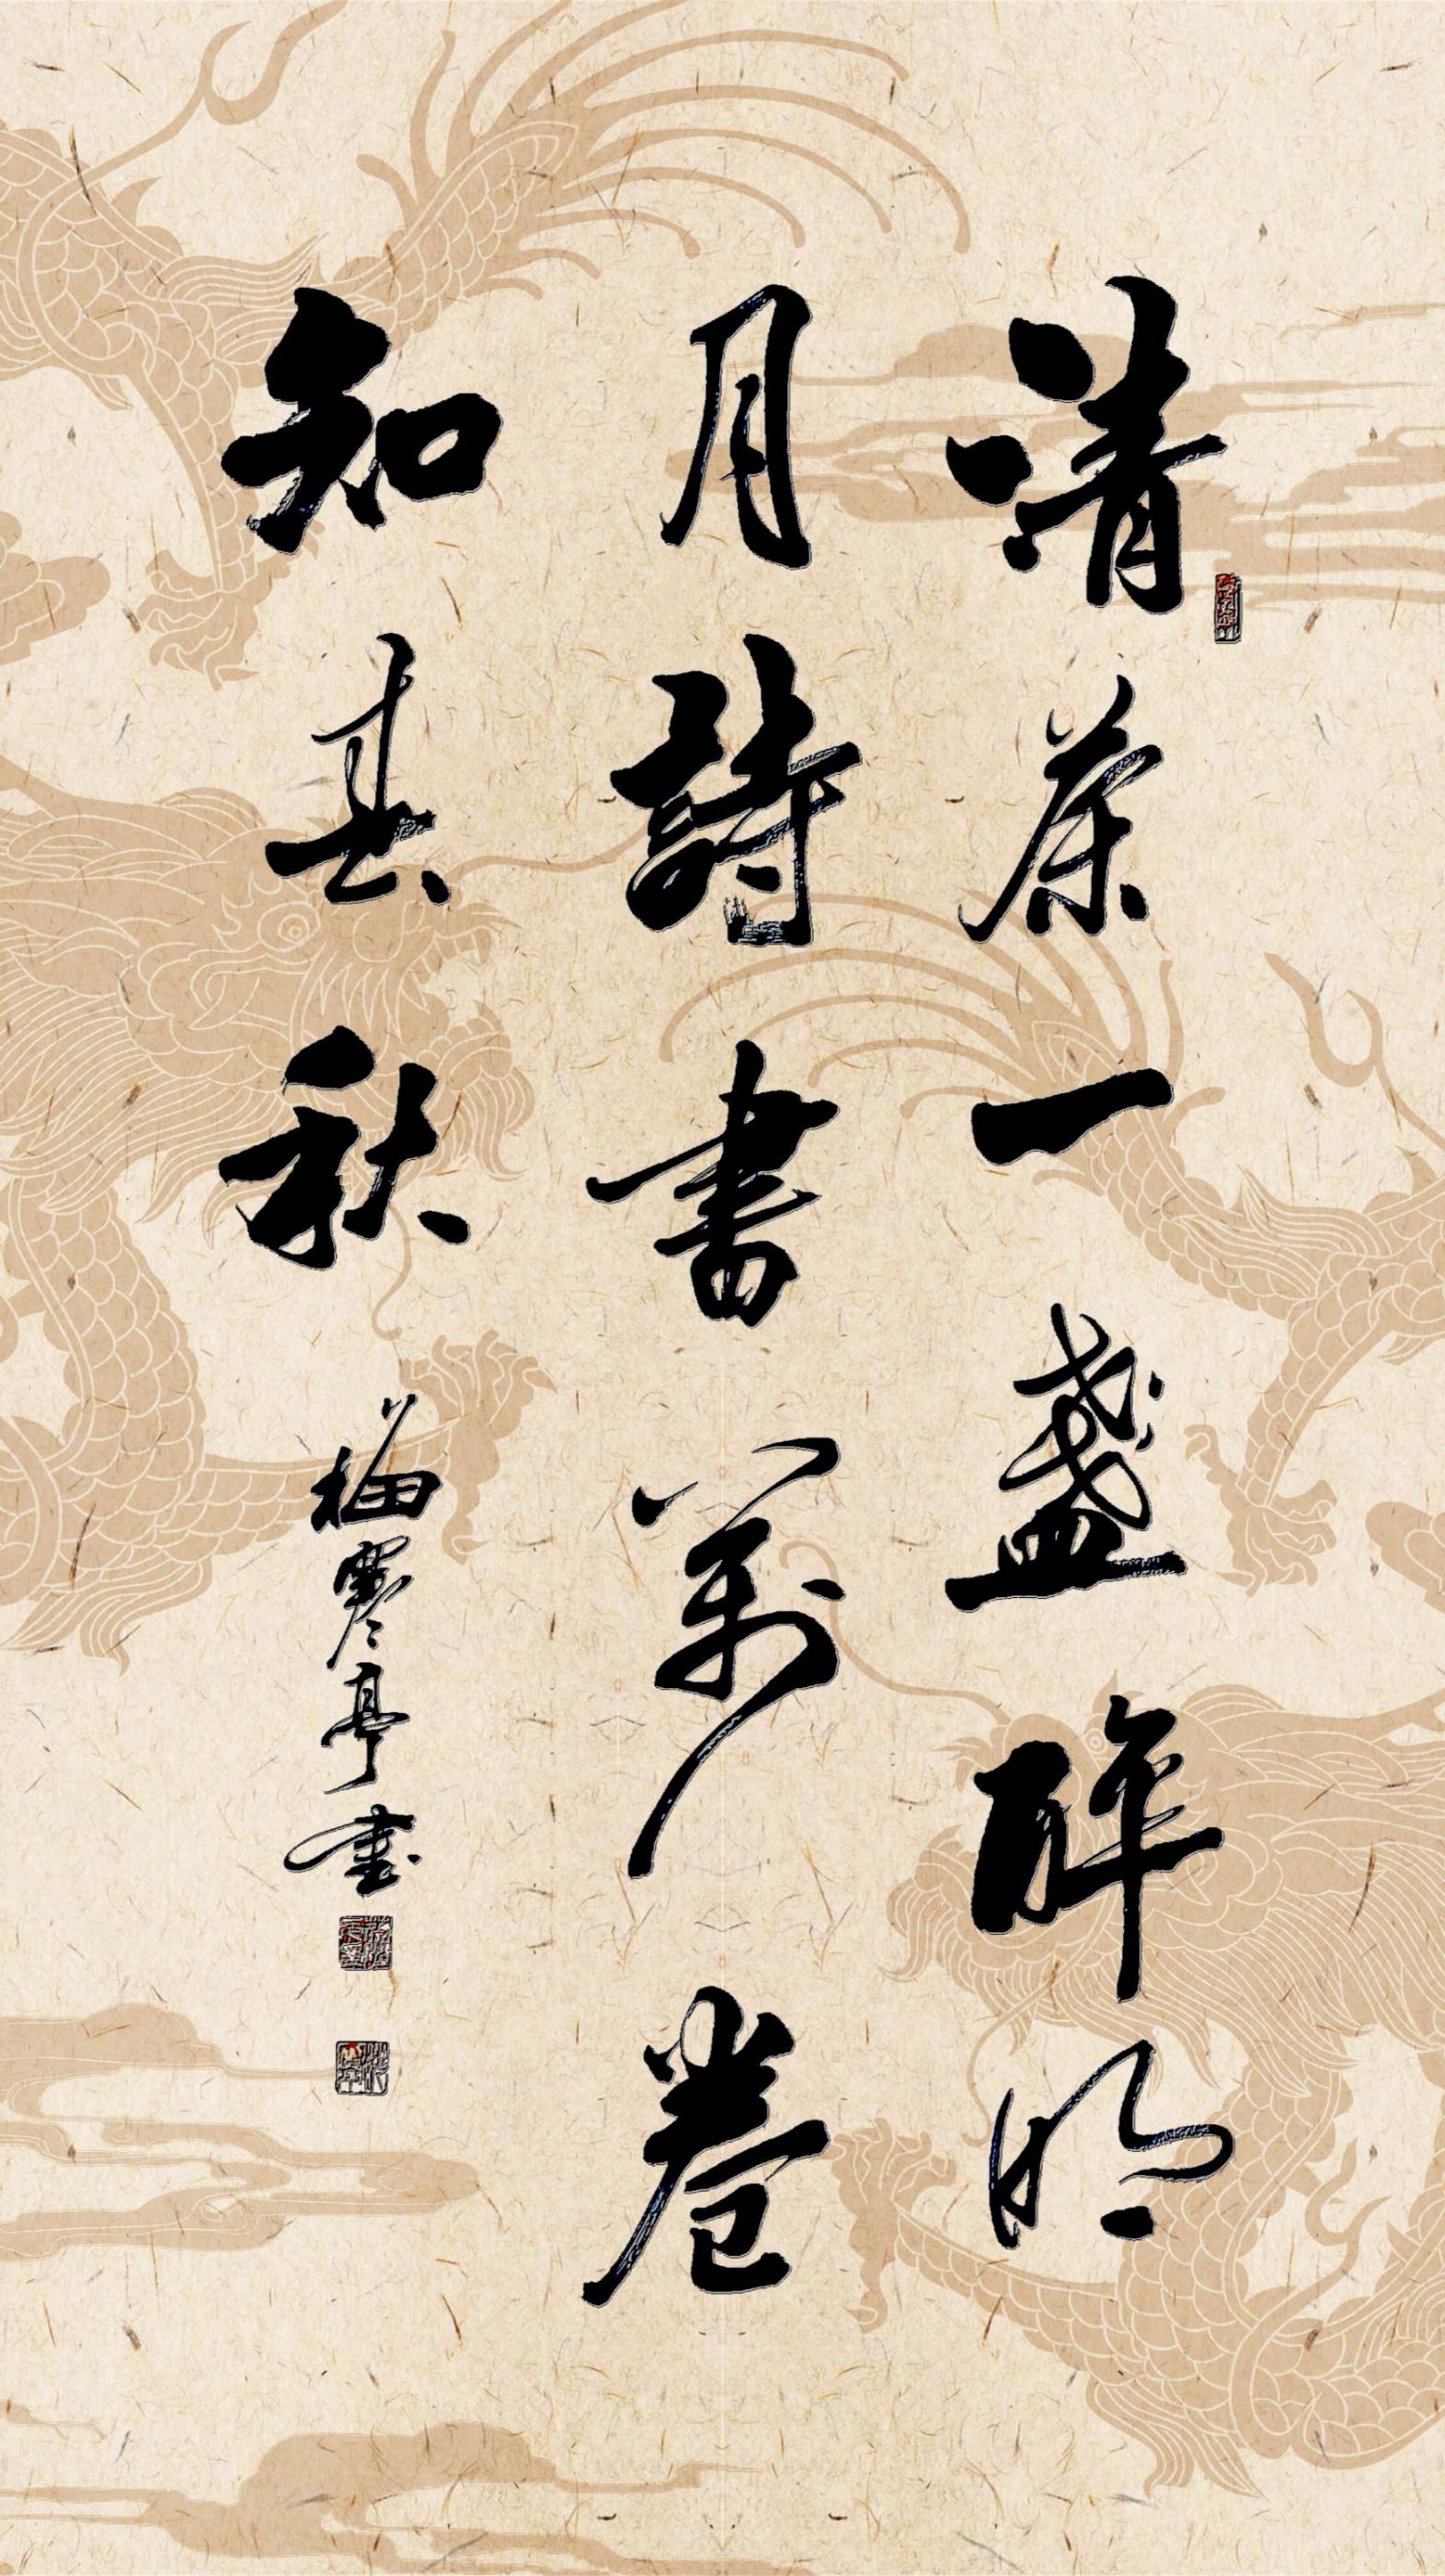 清茶一盞醉明
月詩書萬卷
知春秋
梅寒亭書